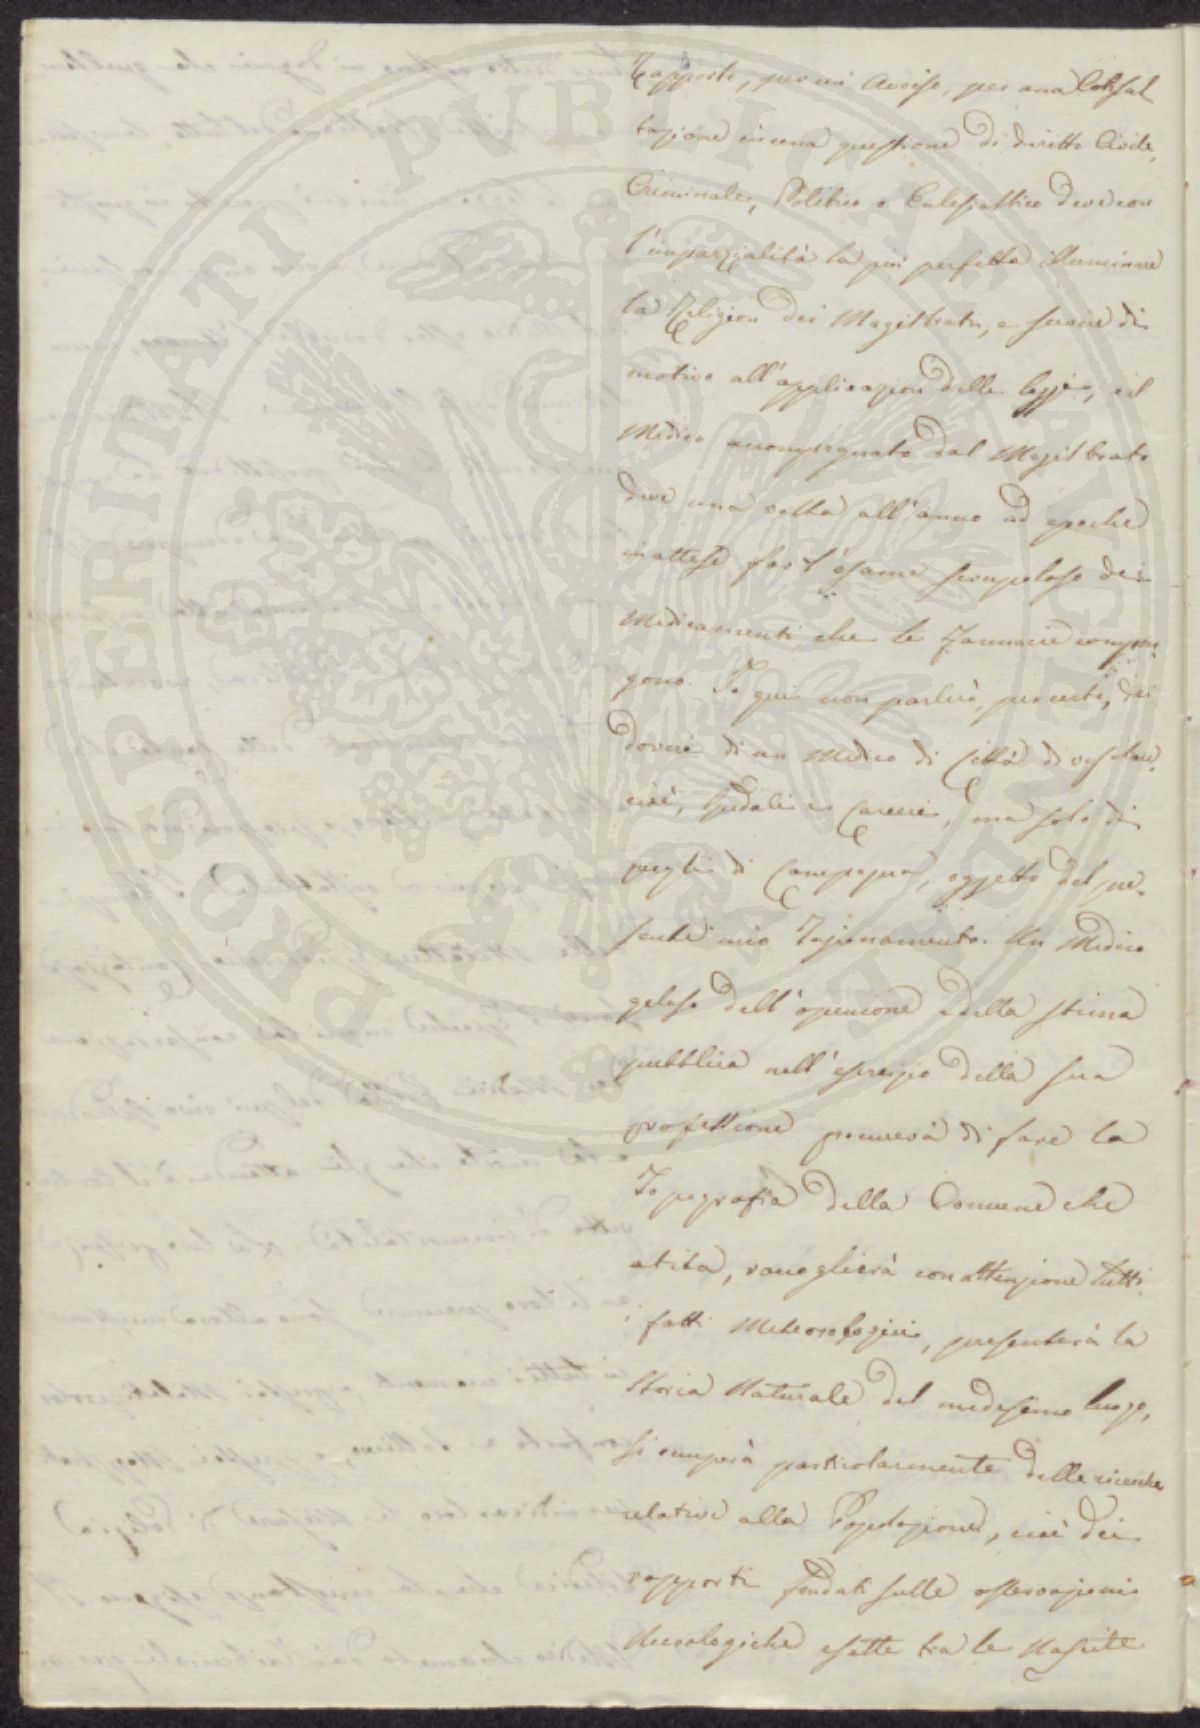 Rapporto, per un Avviso, per una Consul
tazione in una questione di diritto Civile,
Criminale, Politico o Eclesiastico deve con
l'imparzialità la più perfetta illuminare
la Religion dei Magistrati, e servire di
motivo all'applicazion delle leggi, il
Medico accompagnato dal Magistrato
deve una volta all'anno ad epoche
inattese far l'esame scrupoloso dei
Medicamenti che le Farmacie compon-
gono. Io qui non parlerò, per certo, dei
doveri di un Medico di Città di
Spedali e Carceri, ma solo di
quegli di Campagna, oggetto del pre-
sente mio Ragionamento. Un Medico
geloso dell'openione e della stima
pubblica nell'esercizio della sua
professione procurerà di fare la
Topografia della Comune che
abita, raccoglierà con attenzione tutti
i fatti Meteorologici, presenterà la
Storia Naturale del medesimo luogo,
si occuperà particolarmente delle ricerche
relative alla Popolazione, cioè dei
rapporti fondati sulle osservazioni
Necrologiche esatte tra le Nascite
PROSPERITATI PUBLICAE AUGENDAE